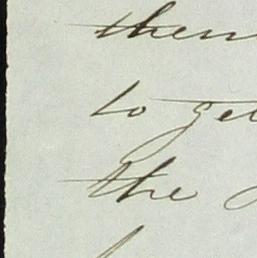 then
to get
the